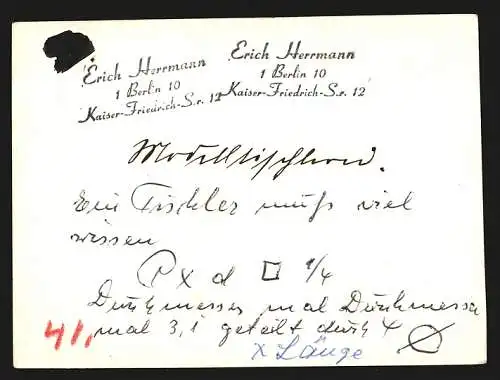 Erich Herrmann
1 Berlin 10
Kaiser-Friedrich-S.r. 12
Erich Herrmann
1 Berlin 10
Kaiser-Friedrich-S.r. 12
Modelltischlerei.
Ein Tischler muß viel
wissen
d x d □ 1/4
Durchmesser mal Durchmesser
mal 3,1 geteilt durch 4
x Länge
41,